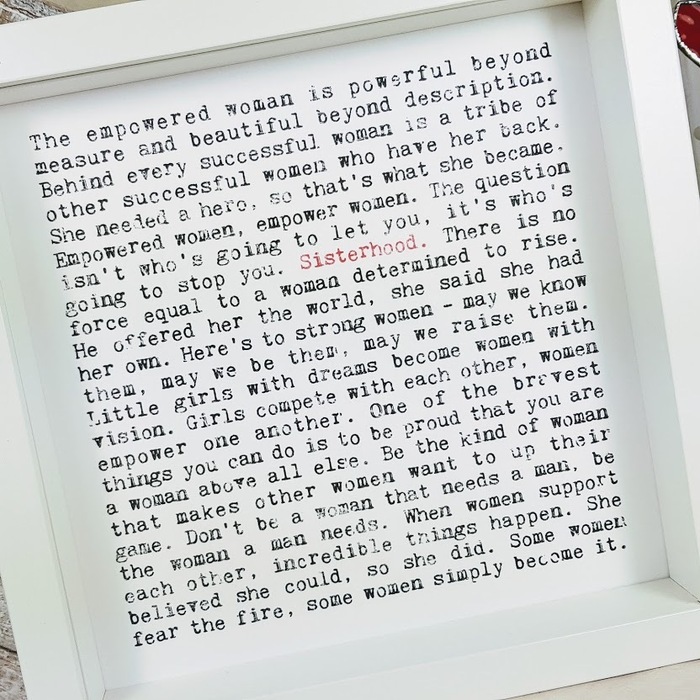 The empowered woman is powerful beyond
measure and beautiful beyond description.
Behind every successful woman is a tribe of
other successful women who have her back.
She needed a hero, so that's what she became.
Empowered women, empower women. The question
isn't who's going to let you, it's who's
going to stop you. Sisterhood. There is no
force equal to a woman determined to rise.
He offered her the world, she said she had
her own. Here's to strong women - may we know
them, may we be them, may we raise them.
Little girls with dreams become women with
vision. Girls compete with each other, women
empower one another. One of the bravest
things you can do is to be proud that you are
a woman above all else. Be the kind of woman
that makes other women want to up their
game. Don't be a woman that needs a man, be
the woman a man needs. When women support
each other, incredible things happen. She
believed she could, so she did. Some women
fear the fire, some women simply become it.